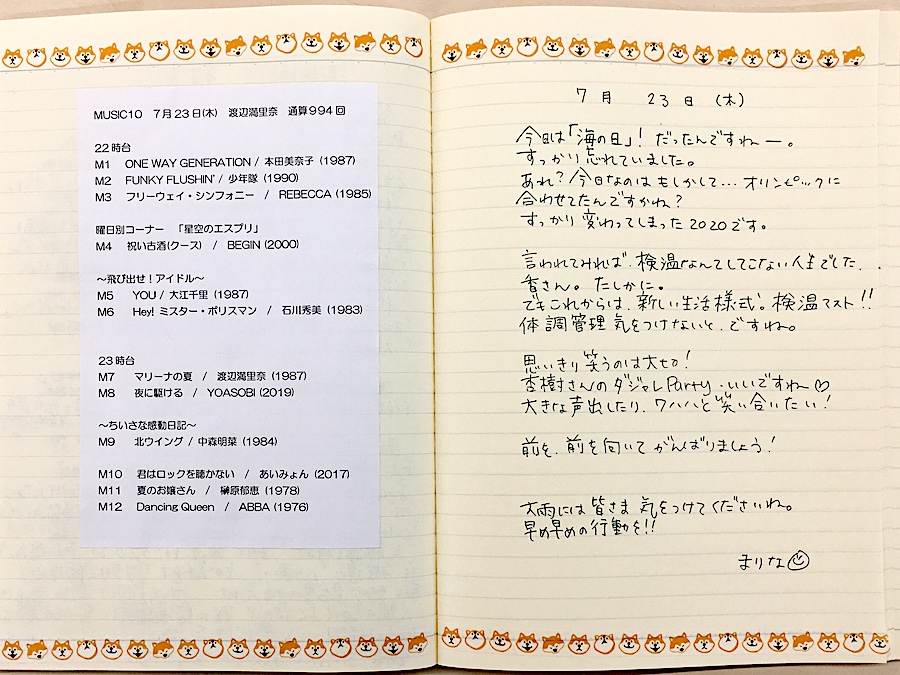 MUSIC10 7月23日(木) 渡辺満里奈 通算994回
22時台
M1 ONE WAY GENERATION / 本田美奈子 (1987)
M2 FUNKY FLUSHIN' / 少年隊 (1990)
M3 フリーウェイ・シンフォニー / REBECCA (1985)
曜日別コーナー 「星空のエスプリ」
M4 祝い古酒(クース) / BEGIN (2000)
～飛び出せ!アイドル～
M5 YOU / 大江千里 (1987)
M6 Hey! ミスター・ポリスマン / 石川秀美 (1983)
23時台
M7 マリーナの夏 / 渡辺満里奈 (1987)
M8 夜に駆ける / YOASOBI (2019)
～ちいさな感動日記～
M9 北ウイング / 中森明菜 (1984)
M10 君はロックを聴かない / あいみょん (2017)
M11 夏のお嬢さん / 榊原郁恵 (1978)
M12 Dancing Queen / ABBA (1976)
7月 23日 (木)
今日は「海の日」! だったんですねー。
すっかり忘れていました。
あれ?今日なのはもしかして... オリンピックに
合わせてたんですかね?
すっかり変わってしまった2020です。
言われてみれば、検温なんてしてこない人生でした、
香さん。たしかに。
でもこれからは、新しい生活様式。検温マスト!!
体調管理気をつけないと、ですね。
思いきり笑うのは大切!
杏樹さんのダジャレParty、いいですねー♡
大きな声出したり、ワハハと笑い合いたい!
前を、前を向いてがんばりましょう!
大雨には皆さま気をつけてくださいね。
早め早めの行動を!!
まりな☺